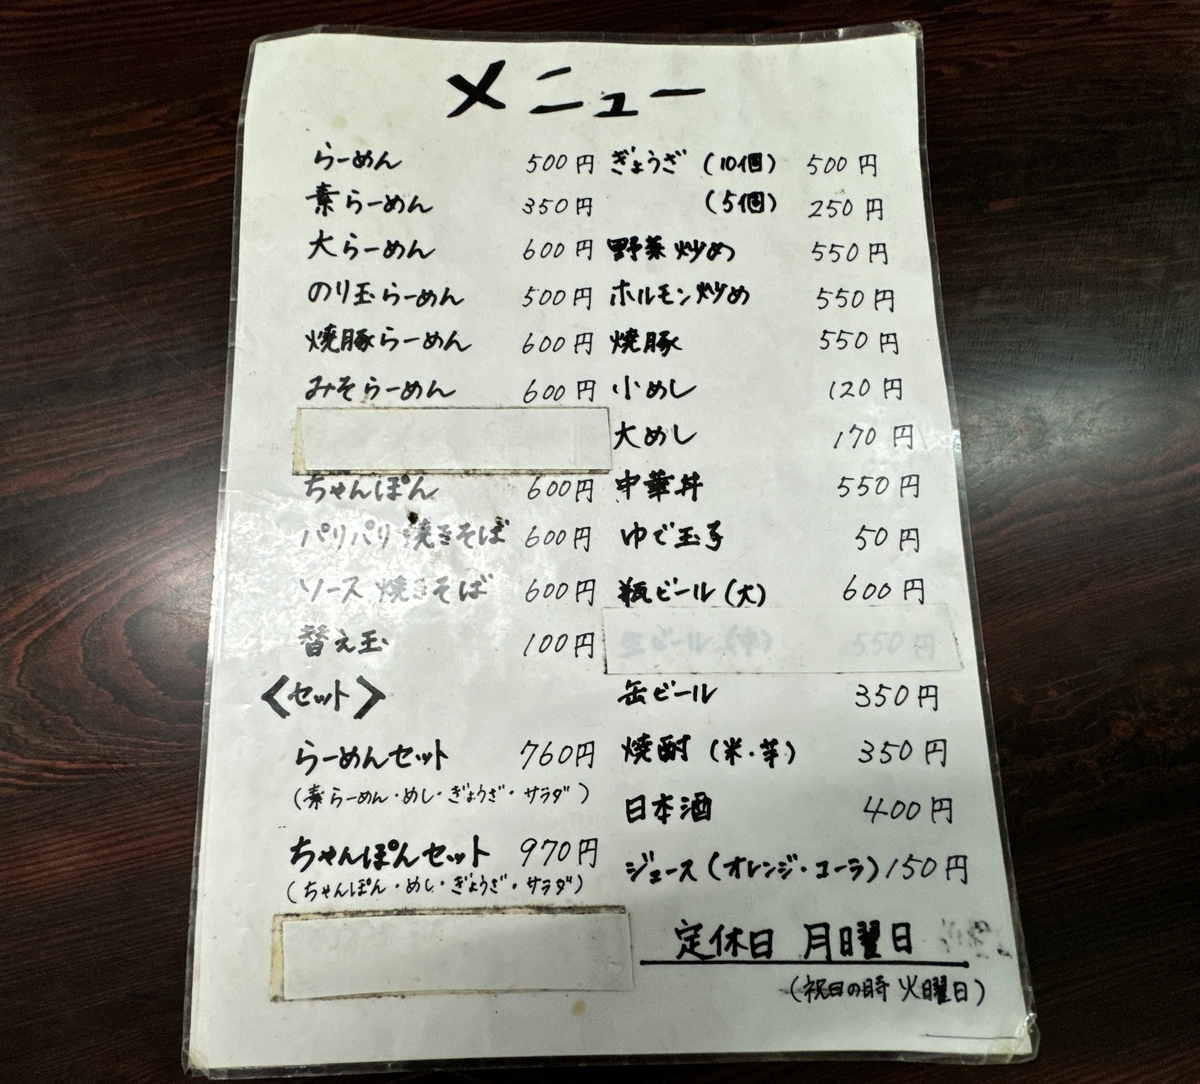 メニュー
らーめん 500円
素らーめん 350円
大らーめん 600円
のり玉らーめん 500円
焼豚らーめん 600円
みそらーめん 600円
ちゃんぽん 600円
パリパリ焼きそば 600円
ソース焼きそば 600円
替え玉 100円
〈セット〉
らーめんセット 760円
(素らーめん・めし・ぎょうざ・サラダ)
ちゃんぽんセット 970円
(ちゃんぽん・めし・ぎょうざ・サラダ)
ぎょうざ(10個) 500円
(5個) 250円
野菜炒め 550円
ホルモン炒め 550円
焼豚 550円
小めし 120円
大めし 170円
中華丼 550円
ゆで玉子 50円
瓶ビール(大) 600円
生ビール(中) 550円
缶ビール 350円
焼酎(米・芋) 350円
日本酒 400円
ジュース(オレンジ・コーラ) 150円
定休日 月曜日
(祝日の時 火曜日)